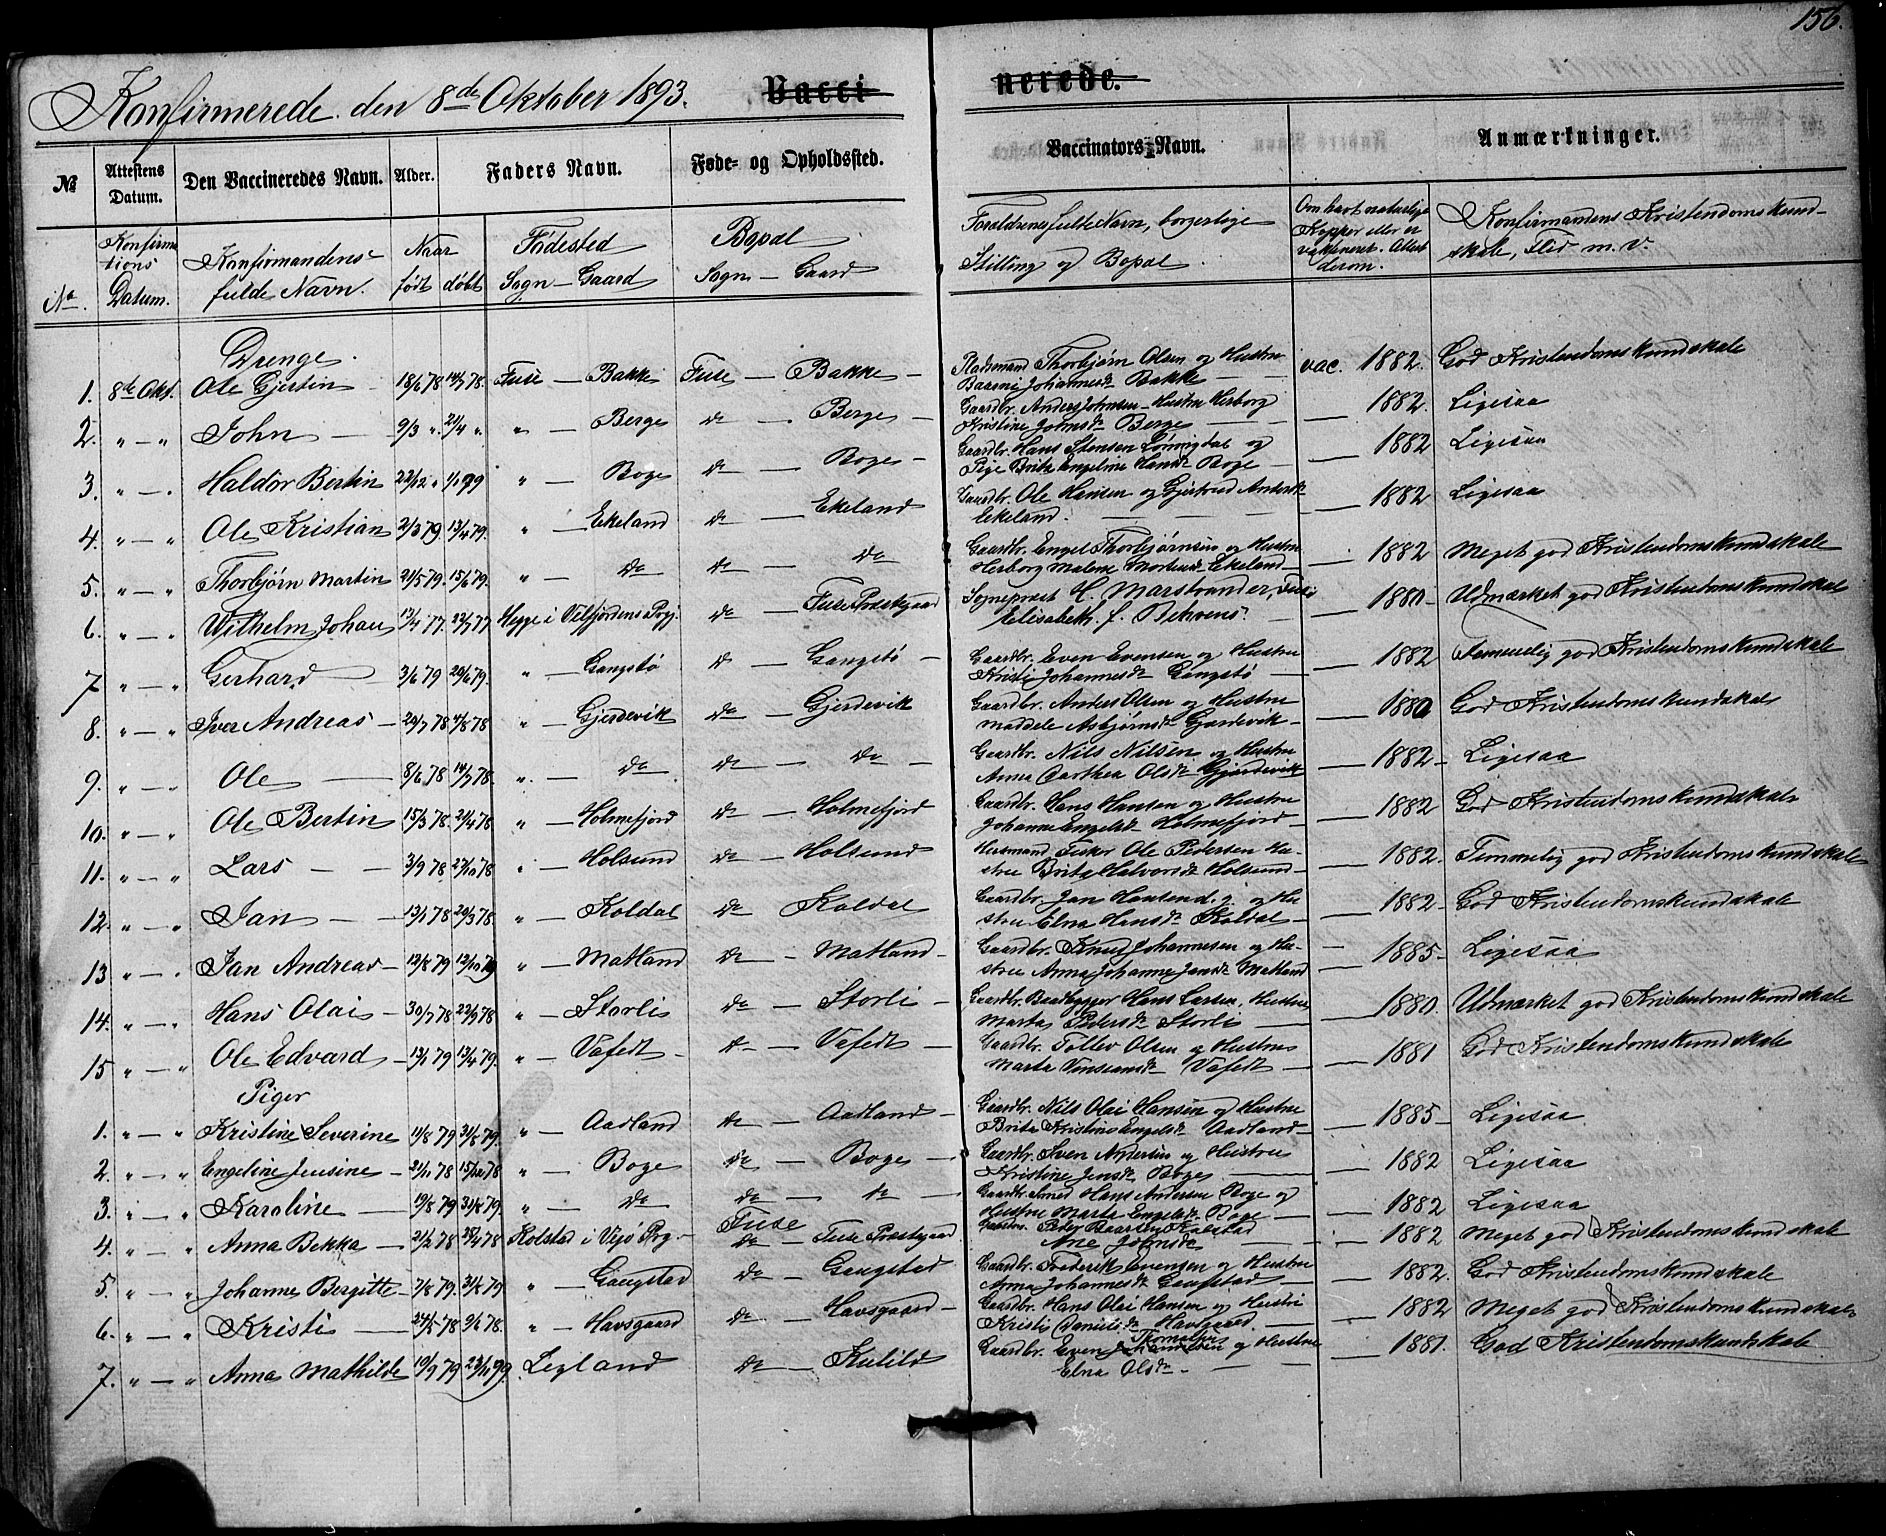 156.
Konfirmerede den 8de Oktober 1893. Vacci nerede.
No Attestens Datum. Den Vaccineredes Navn. Alder. Faders Navn. Føde- og Opholdssted. Vaccinators Navn. Anmærkninger.
No. Konfirmationsdatum. Konfirmandens fulde Navn. Naar født døbt Fødested Sogn — Gaard Bopæl Sogn — Gaard Forældrenes fulde Navn, borgerlige Stilling og Bopæl. Om havt naturlige Kopper eller er vaktineret. Konfirmandens Kristendomskundskab, Flid m. v.
Drenge.
1. 8de Okt. Ole Gjertin 18/6 78 14/7 78. Fuse — Bakke Fuse — Bakke — Thorbjørn Olsen og Hustru Johannesdr Bakke vac. 1882. God Kristendomskundskab
2. " — " John — 9/3 " 21/4 " " — Berge do — Berge — Gaardbr. Anders Johnsen — Hustru Herborg Kristine Johnsdr Berge — 1882. Ligesaa
3. " — " Haldor Bertin 22/12 " " — Boge do — Boge — Gaardbr. Hans Stensen og Pige Brita Engeline Hansdr Boge — 1882 Ligesaa
4. " — " Ole Kristian 2/3 79 13/4 79. " — Ekeland do — Ekeland Gaardbr. Ole Hansen og Gjertrud Ekeland. — 1882 Ligesaa
5. " — " Thorbjørn Martin 21/5 79. 15/6 79. " — do do — do Gaardbr. Engel Thorbjørnsen og Hustru Herborg Malene Ekeland — 1882 Meget god Kristendomskundskab
6. " — " Wilhelm Johan 13/4 77. 22/7 77 Hegge i do — Fuse Præstegaard Sogneprest H. Marstrander, Fuse Elisabeth f. Behrens — 1880 — Udmærket god Kristendomskundskab
7 " — " Gerhard 3/6 79 29/6 79. " — Gangstø do — Gangstø — Gaardbr. Even Evensen og Hustru Kristi Johannesdr Gangstø — 1882 Temmelig god Kristendomskundskab
8. " — " Iver Andreas — 20/7 78 4/8 78 " — Gjerdevik do — Gjerdevik Gaardbr. Anders Olsen og Hustru Asbjørnsdr Gjærdevik — 1880 God Kristendomskundskab
9. " — " Ole — 8/6 78 14/7 78. " — do do — do — Gaardbr. Nils Nilsen og Hustru Anna Olsdr Gjærdevik — 1882 — Ligesaa
10. " — " Ole Bertin 15/3 78 21/4 78 " — Holmefjord do — Holmefjord Gaardbr. Hans Hansen og Hustru Johanne Engelsdr Holmefjord — 1882 God Kristendomskundskab
11. " — " Lars — 3/9 78 27/10 78 " — Holsund do — Holsund Husmand Fisker Ole Pedersen Hustru Brita Halvorsdr Holsund — 1882. Temmelig god Kristendomskundskab
12. " — " Jan — 13/1 78 20/3 78 " — Koldal do — Koldal Gaardbr. Jan og Hustru Elna Hansdr Koldal — 1882 — God Kristendomskundskab
13 " — " Jan Andreas — 12/8 79 12/10 79 " — Matland do — Matland — Gaardbr. Knud Johannesen og Hustru Anna Johanne Jansdr Matland — 1885 — Ligesaa
14. " — " Hans Olai — 30/7 78 22/9 78 " — Storli do — Storli — Gaardbr. Baadbygger Hans Larsen. Hustru Marta Pedersdr Storli — 1880. Udmærket god Kristendomskundskab
15 " — " Ole Edvard — 13/1 79 13/4 79. " — Vefedt — do — Vefedt — Gaardbr. Tollev Olsen og Hustru Marta Vefedt — 1881 God Kristendomskundskab
Piger
1. " — " Kristine Severine 11/8 79 31/8 79. " — Aadland do — Aadland — Gaardbr. Nils Olai Hansen og Hustru Brita Kristine Engelsdr Aadland — 1885 — Ligesaa
2. " — " Engeline Jensine — 21/11 78 15/12 78 " — Boge do — Boge — Gaardbr. Sven Andersen og Hustru Kristine Jensdr Boge — 1882 Ligesaa
3. " — " Karoline — 19/8 79 31/8 79. " — do do — do — Gaardbr. Smed Hans Andersen Boge og Hustru Marta Engelsdr Boge — 1882 Ligesaa
4. " — " Anna Bekka — 21/2 78 Kolstad i Vejø Prg. — Fuse do — Fuse Præstegaard Peder Kolstad Ane Johnsdr — 1882 Meget god Kristendomskundskab
5. " — " Johanne Bergitte — 7/8 79. 31/8 79 " — Gangstad do — Gangstad Gaardbr. Frederik Evensen og Hustru Anna Johannesdr Gangstad — 1882. God Kristendomskundskab
6. " — " Kristi — 24/5 78 9/6 78. " — Havsgaard do — Havsgaard — Gaardbr. Hans Olai Hansen og Hustru Kristi Danielsdr Havsgaard — 1882 Meget god Kristendomskundskab
7. " — " Anna Mathilde 19/9 79 Ligland do — Kutild Gaardbr. Even og Hustru Elna Olsdr — 1881. God Kristendomskundskab